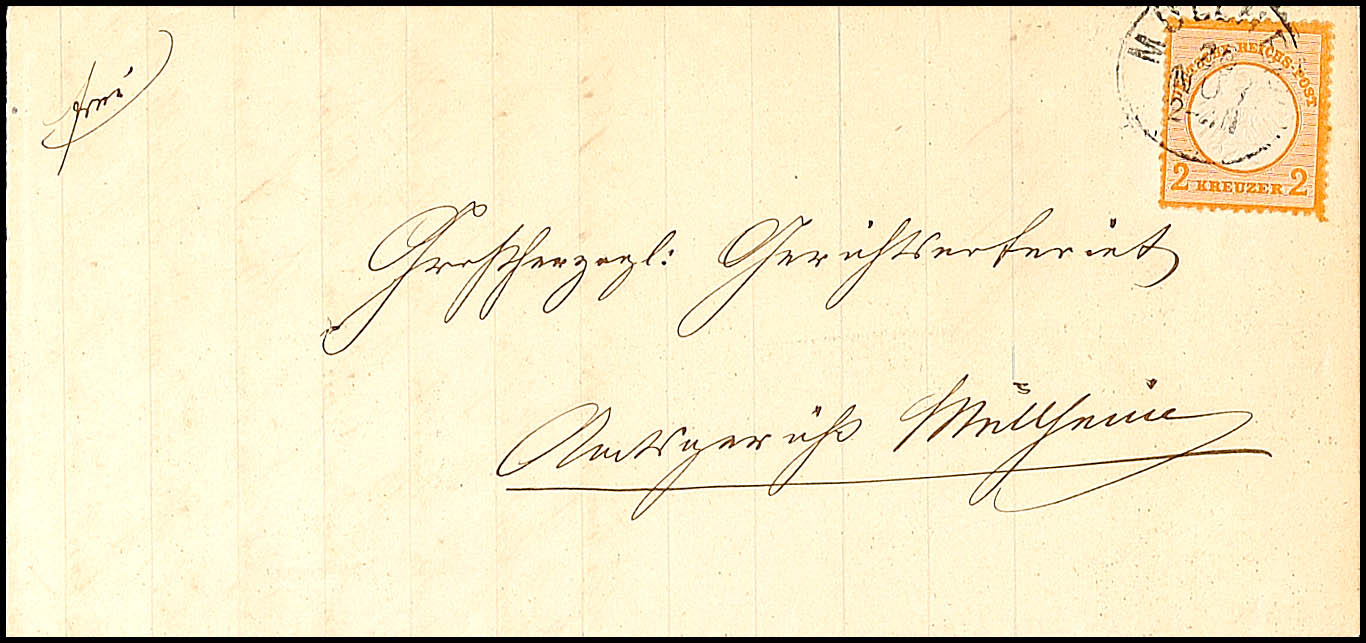 frei
DEUTSCHE REICHS-POST
2 KREUZER 2
Großherzogl: Gerichtsnotariat
Amtsgericht Müllheim